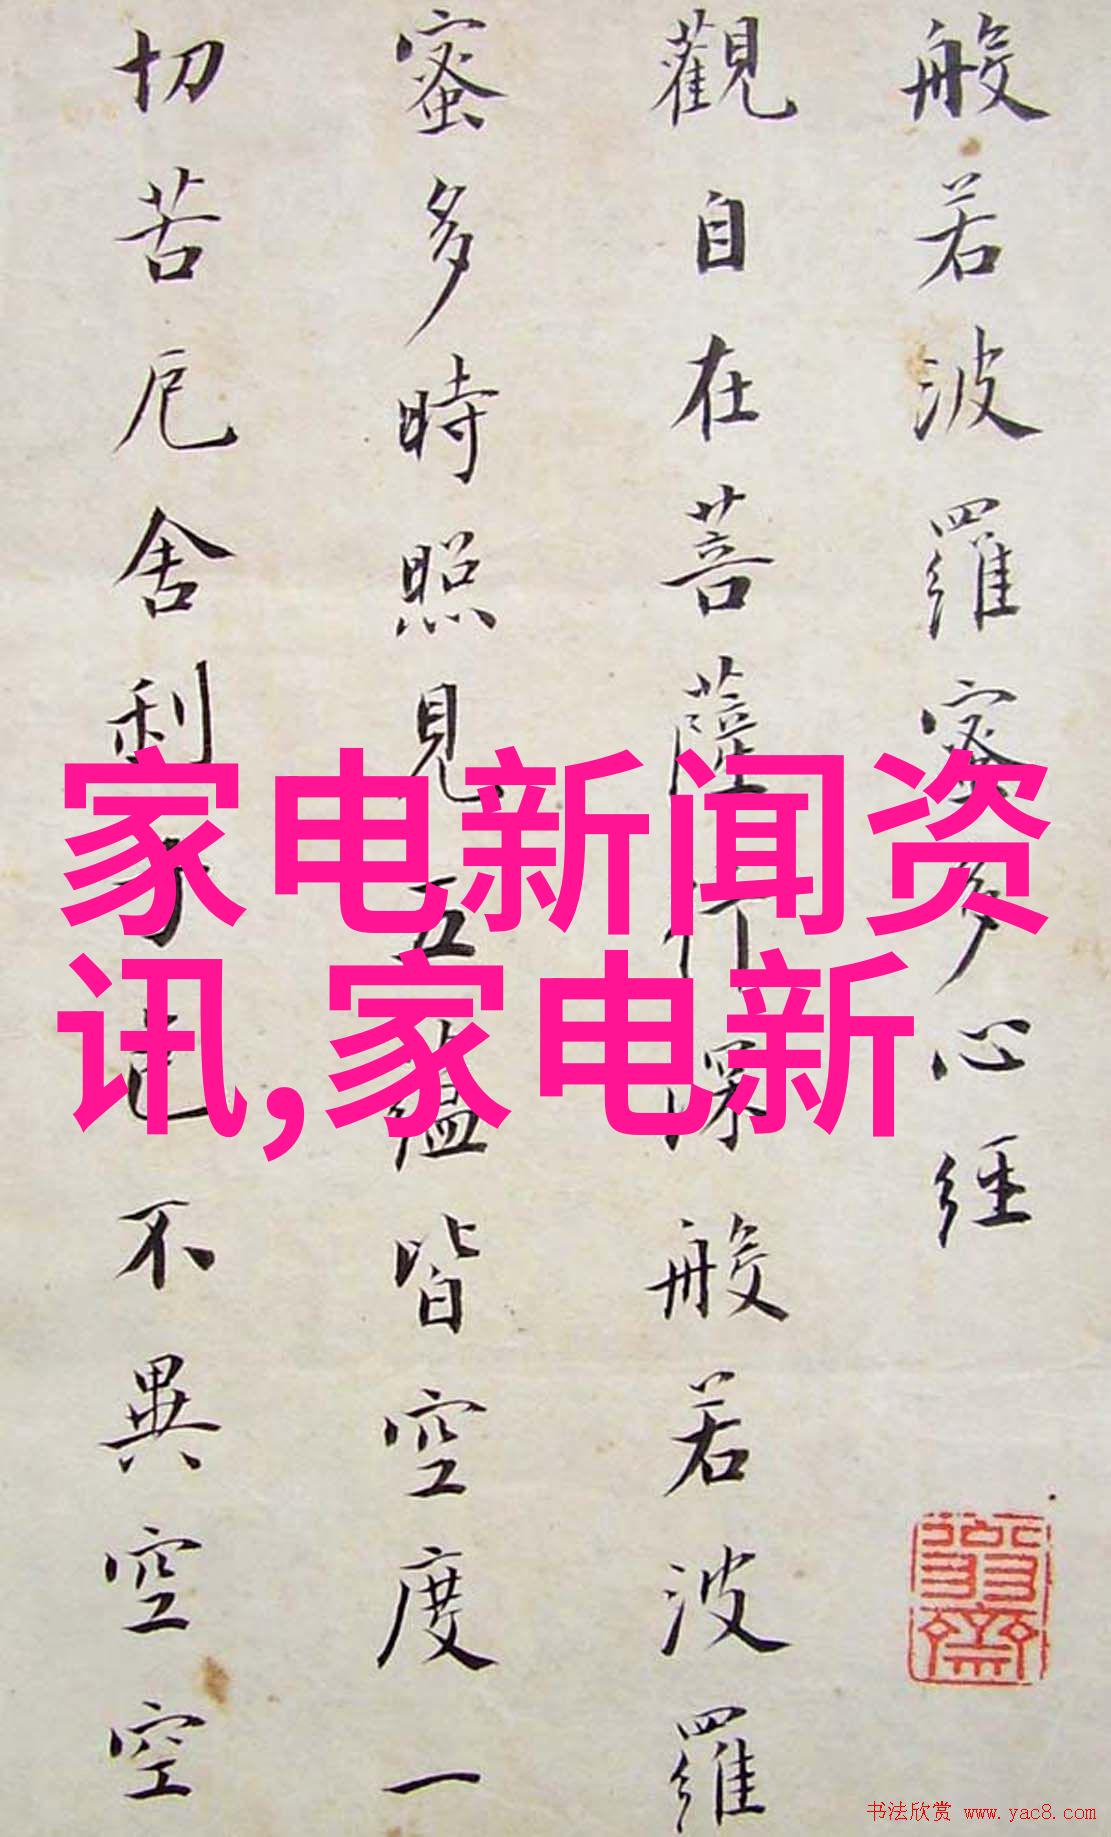 般若波羅蜜多心經
觀自在菩薩行深般若波羅
蜜多時照見五蘊皆空度一
切苦厄舍利子色不異空空
家电新闻资
讯,家电新
书法欣赏 www.yac8.com